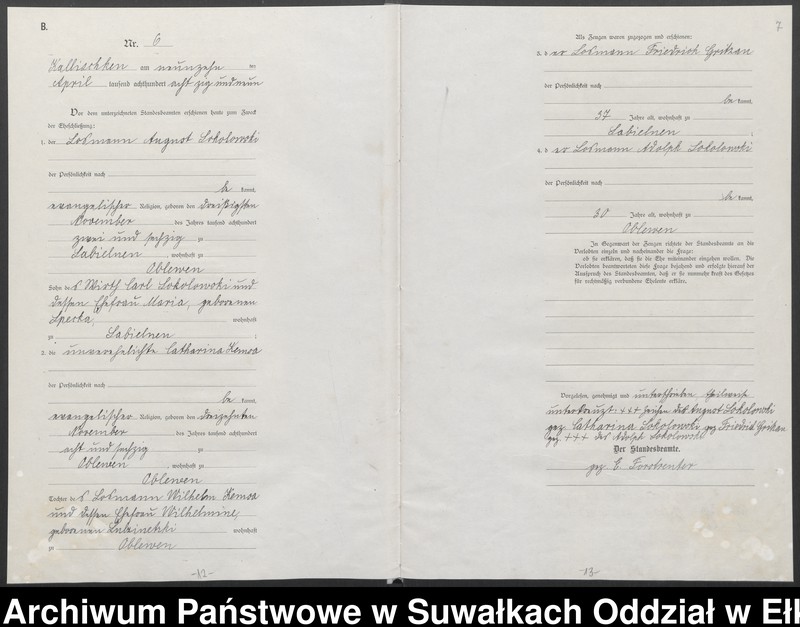 B.
Nr. 6
Kallischken am neunzehn ten
April tausend achthundert acht zig und neun
Vor dem unterzeichneten Standesbeamten erschienen heute zum Zweck
der Eheschließung:
1. der Losmann August Sokolowski
der Persönlichkeit nach
be kannt,
evangelischer Religion, geboren den dreißigsten
November des Jahres tausend achthundert
zwei und sechzig zu
Sabielnen, wohnhaft zu
Oblewen
Sohn des Wirth Carl Sokolowski und
dessen Ehefrau Maria, geborenen
wohnhaft
zu Sabielnen ;
2. die unverehelichte Catharina Kemsa
der Persönlichkeit nach
be kannt,
evangelischer Religion, geboren den dreizehnten
November des Jahres tausend achthundert
acht und sechzig zu
Oblewen, wohnhaft zu
Oblewen
Tochter des Losmann Wilhelm Kemsa
und dessen Ehefrau Wilhelmine,
geborenen wohnhaft
zu Oblewen
-12-
7
Als Zeugen waren zugezogen und erschienen:
3. der Losmann Friedrich Grikzan
der Persönlichkeit nach
be kannt,
37 Jahre alt, wohnhaft zu
Sabielnen ;
4. der Losmann Adolph Sokolowski
der Persönlichkeit nach
be kannt,
30 Jahre alt, wohnhaft zu
Oblewen
In Gegenwart der Zeugen richtete der Standesbeamte an die
Verlobten einzeln und nacheinander die Frage:
ob sie erklären, daß sie die Ehe miteinander eingehen wollen. Die
Verlobten beantworteten diese Frage bejahend und erfolgte hierauf der
Ausspruch des Standesbeamten, daß er sie nunmehr kraft des Gesetzes
für rechtmäßig verbundene Eheleute erkläre.
Vorgelesen, genehmigt und unterschrieben theilweise
unterkreuzt +++ Zeichen des August Sokolowski
gez. Catharina Sokolowski gez Friedrich Grikzan
gez +++ des Adolph Sokolowski
Der Standesbeamte.
gez. E.
-13-
Archiwum Państwowe w Suwałkach Oddział w Ełk